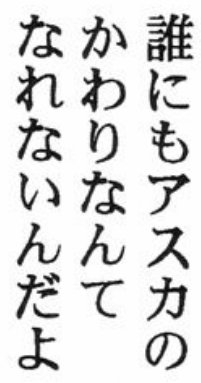 誰にもアスカの
かわりなんて
なれないんだよ